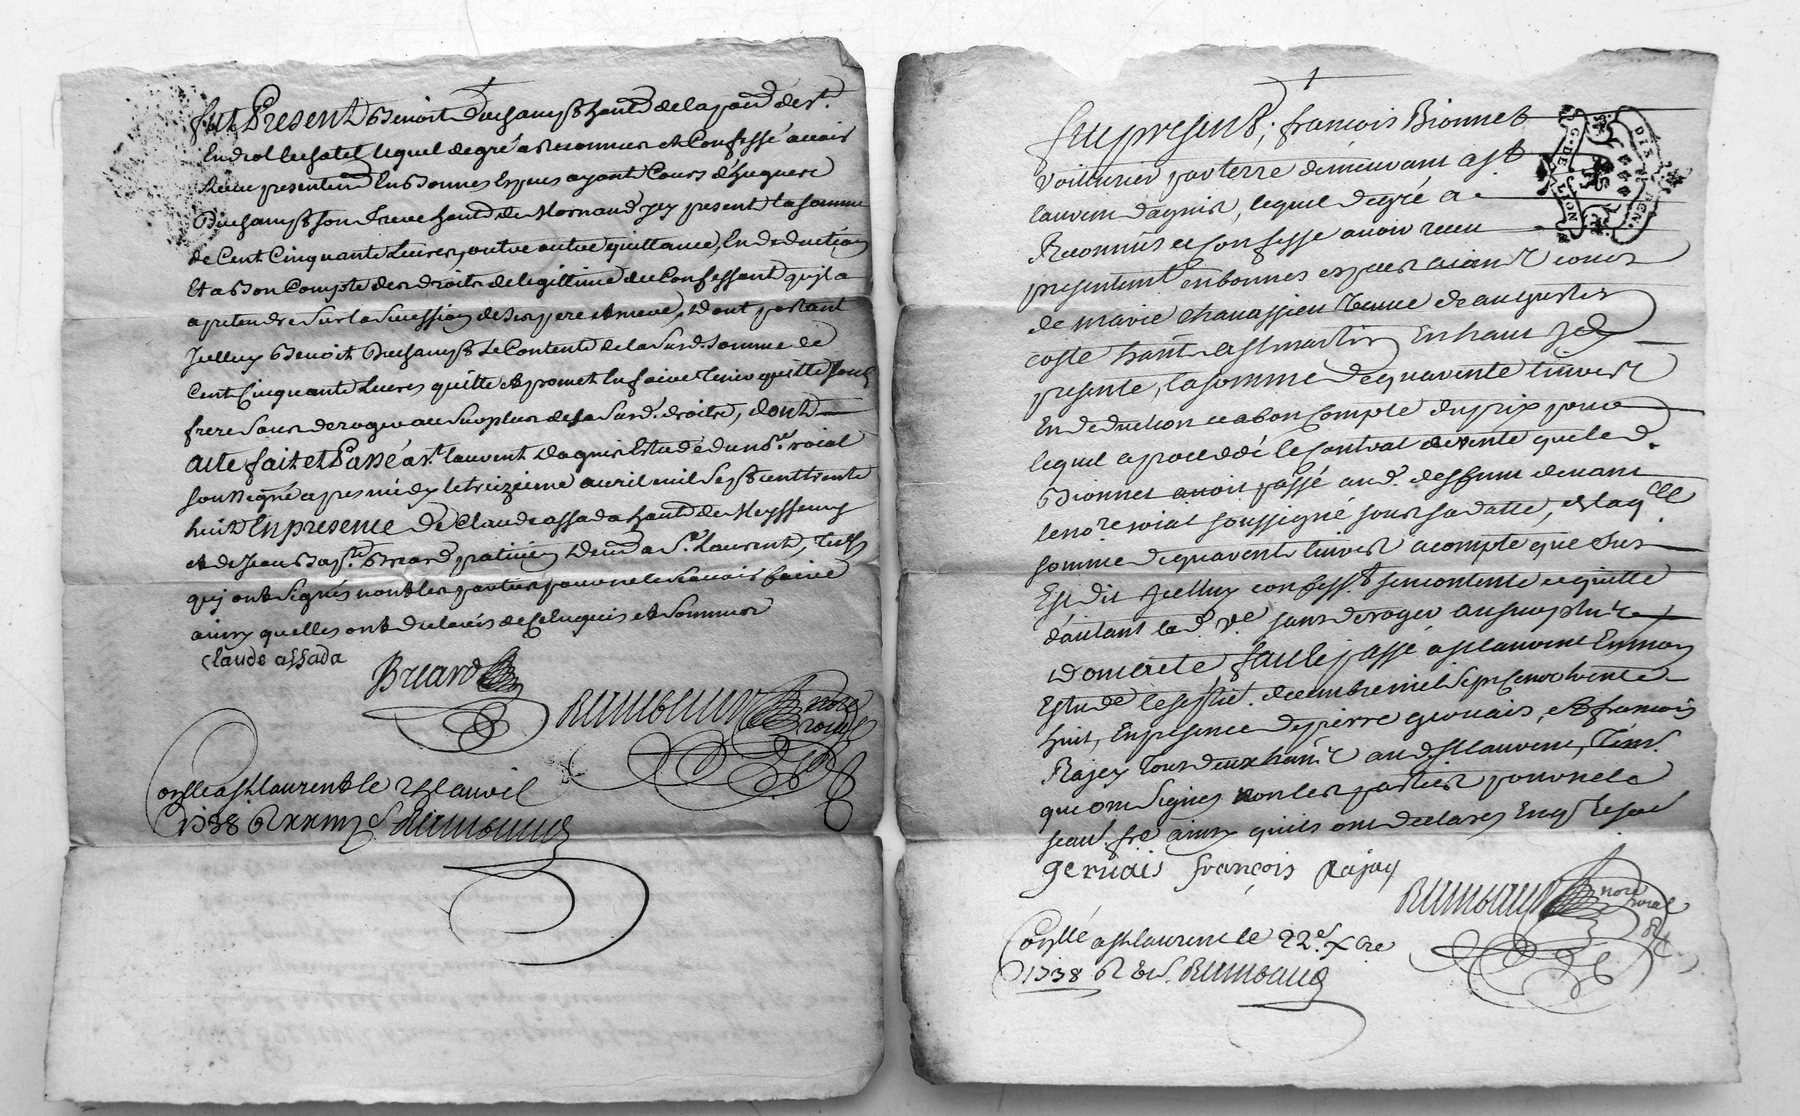 fut Present Benoit Duchamp habt de la par. de st.
Endeol le chatel lequel de gré a reconnu et Confessé avoir
Receu presentemt En bonnes Especes ayant Cours d'hugues
Duchamp son frere habt de Mornand jcy present la somme
de Cent Cinquante Livres, outre autre quittance, En deduction
Et a bon Compte des droits de legittime du Confessant qu'jl a
a pretendre sur la succession de ses pere et mere, dont partant
Jcelluy Benoit Duchamp se Contente de la susd. somme de
Cent Cinquante Livres quitte et promet En faire tenir quitte sond.
frere sans deroger au surplus de sa susd. droits, dont
acte fait et Passé a st. laurent dagnis Estude du nore. roial
soussigné apres midy le treizieme avril mil sept cent trente
huit En presence de Claude assada habt de Meyssemy
et de Jean Bapt. Brard praticien demt a st. Laurent, tesm.
qui ont signés non les parties pour ne le sçavoir faire
ainsy quelles ont declarés de ce Enquis et Sommés
claude assada
Brard
nore
roial
Conllé a st laurent le avril
1738
fut present; françois Bionnet
voiturier par terre demeurant a st
laurent dagnis, lequel de gré a
Reconnu et Confesse avoir receu
presentemt en bonnes especes aiant cours
de marie chavassieu veuve de
coste habt a st martin En haut jcy
presente, la somme de quarente livres
En deduction et a bon Compte du prix pour
lequel a procedé le Contrat de vente que led.
Bionnet avoit passé aud. deffunt devant
le nore roial soussigné sous sa datte, et laqlle
somme de quarente livres a compte que dus
Est dit jcelluy confesst. se contente et quitte
d'autant lad. ve. sans deroger au surplus
dont acte, fait et passé a st laurent En mon
Estude le decembre mil sept cent trente
huit, En presence de pierre gervais, et françois
Rajey tous deux habts aud. st laurent, tesm.
qui ont signés non les parties pour ne le
sçav. fre ainsy quils ont declarés Enqs Et
gervais françois Rajay
nore
roial
Conllé a st laurent le 22e. xbre
1738
G. DE LION
DIX DEN.